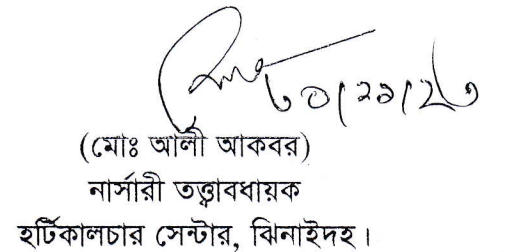 (মোঃ আলী আকবর)
নার্সারী তত্ত্বাবধায়ক
হর্টিকালচার সেন্টার, ঝিনাইদহ।